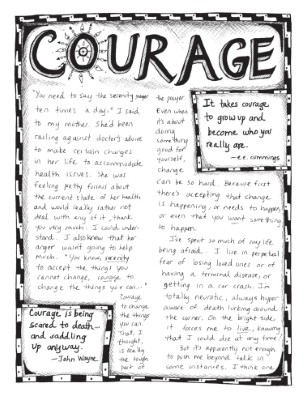 COURAGE
"You need to say the serenity prayer
ten times a day." I said
to my mother. She'd been
railing against doctor's advice
to make certain changes
in her life to accommodate
health issues. She was
feeling pretty furious about
the current state of her health
and would really rather not
deal with any of it, thank
you very much. I could under-
stand. I also knew that her
anger wasn't going to help
much. "You know, serenity
to accept the things you
cannot change, courage to
change the things you can..."
Courage is being
scared to death—
and saddling
up anyway.
—John Wayne
Courage
to change
the things
you can.
That, I
thought,
is really
the tough
part of
the prayer.
Even when
it's about
doing
something
good for
yourself,
change
can be so hard. Because first
there's accepting that change
is happening, or needs to happen,
or even that you want something
to happen.
It takes courage
to grow up and
become who you
really are.
—e.e. cummings
I've spent so much of my life
being afraid. I live in perpetual
fear of losing loved ones or of
having a terminal disease, or
getting in a car crash. I'm
totally neurotic, always hyper
aware of death lurking around
the corner. On the bright side,
it forces me to live, knowing
that I could die at any time.
But it's apparently not enough
to push me beyond talk in
some instances. I think one